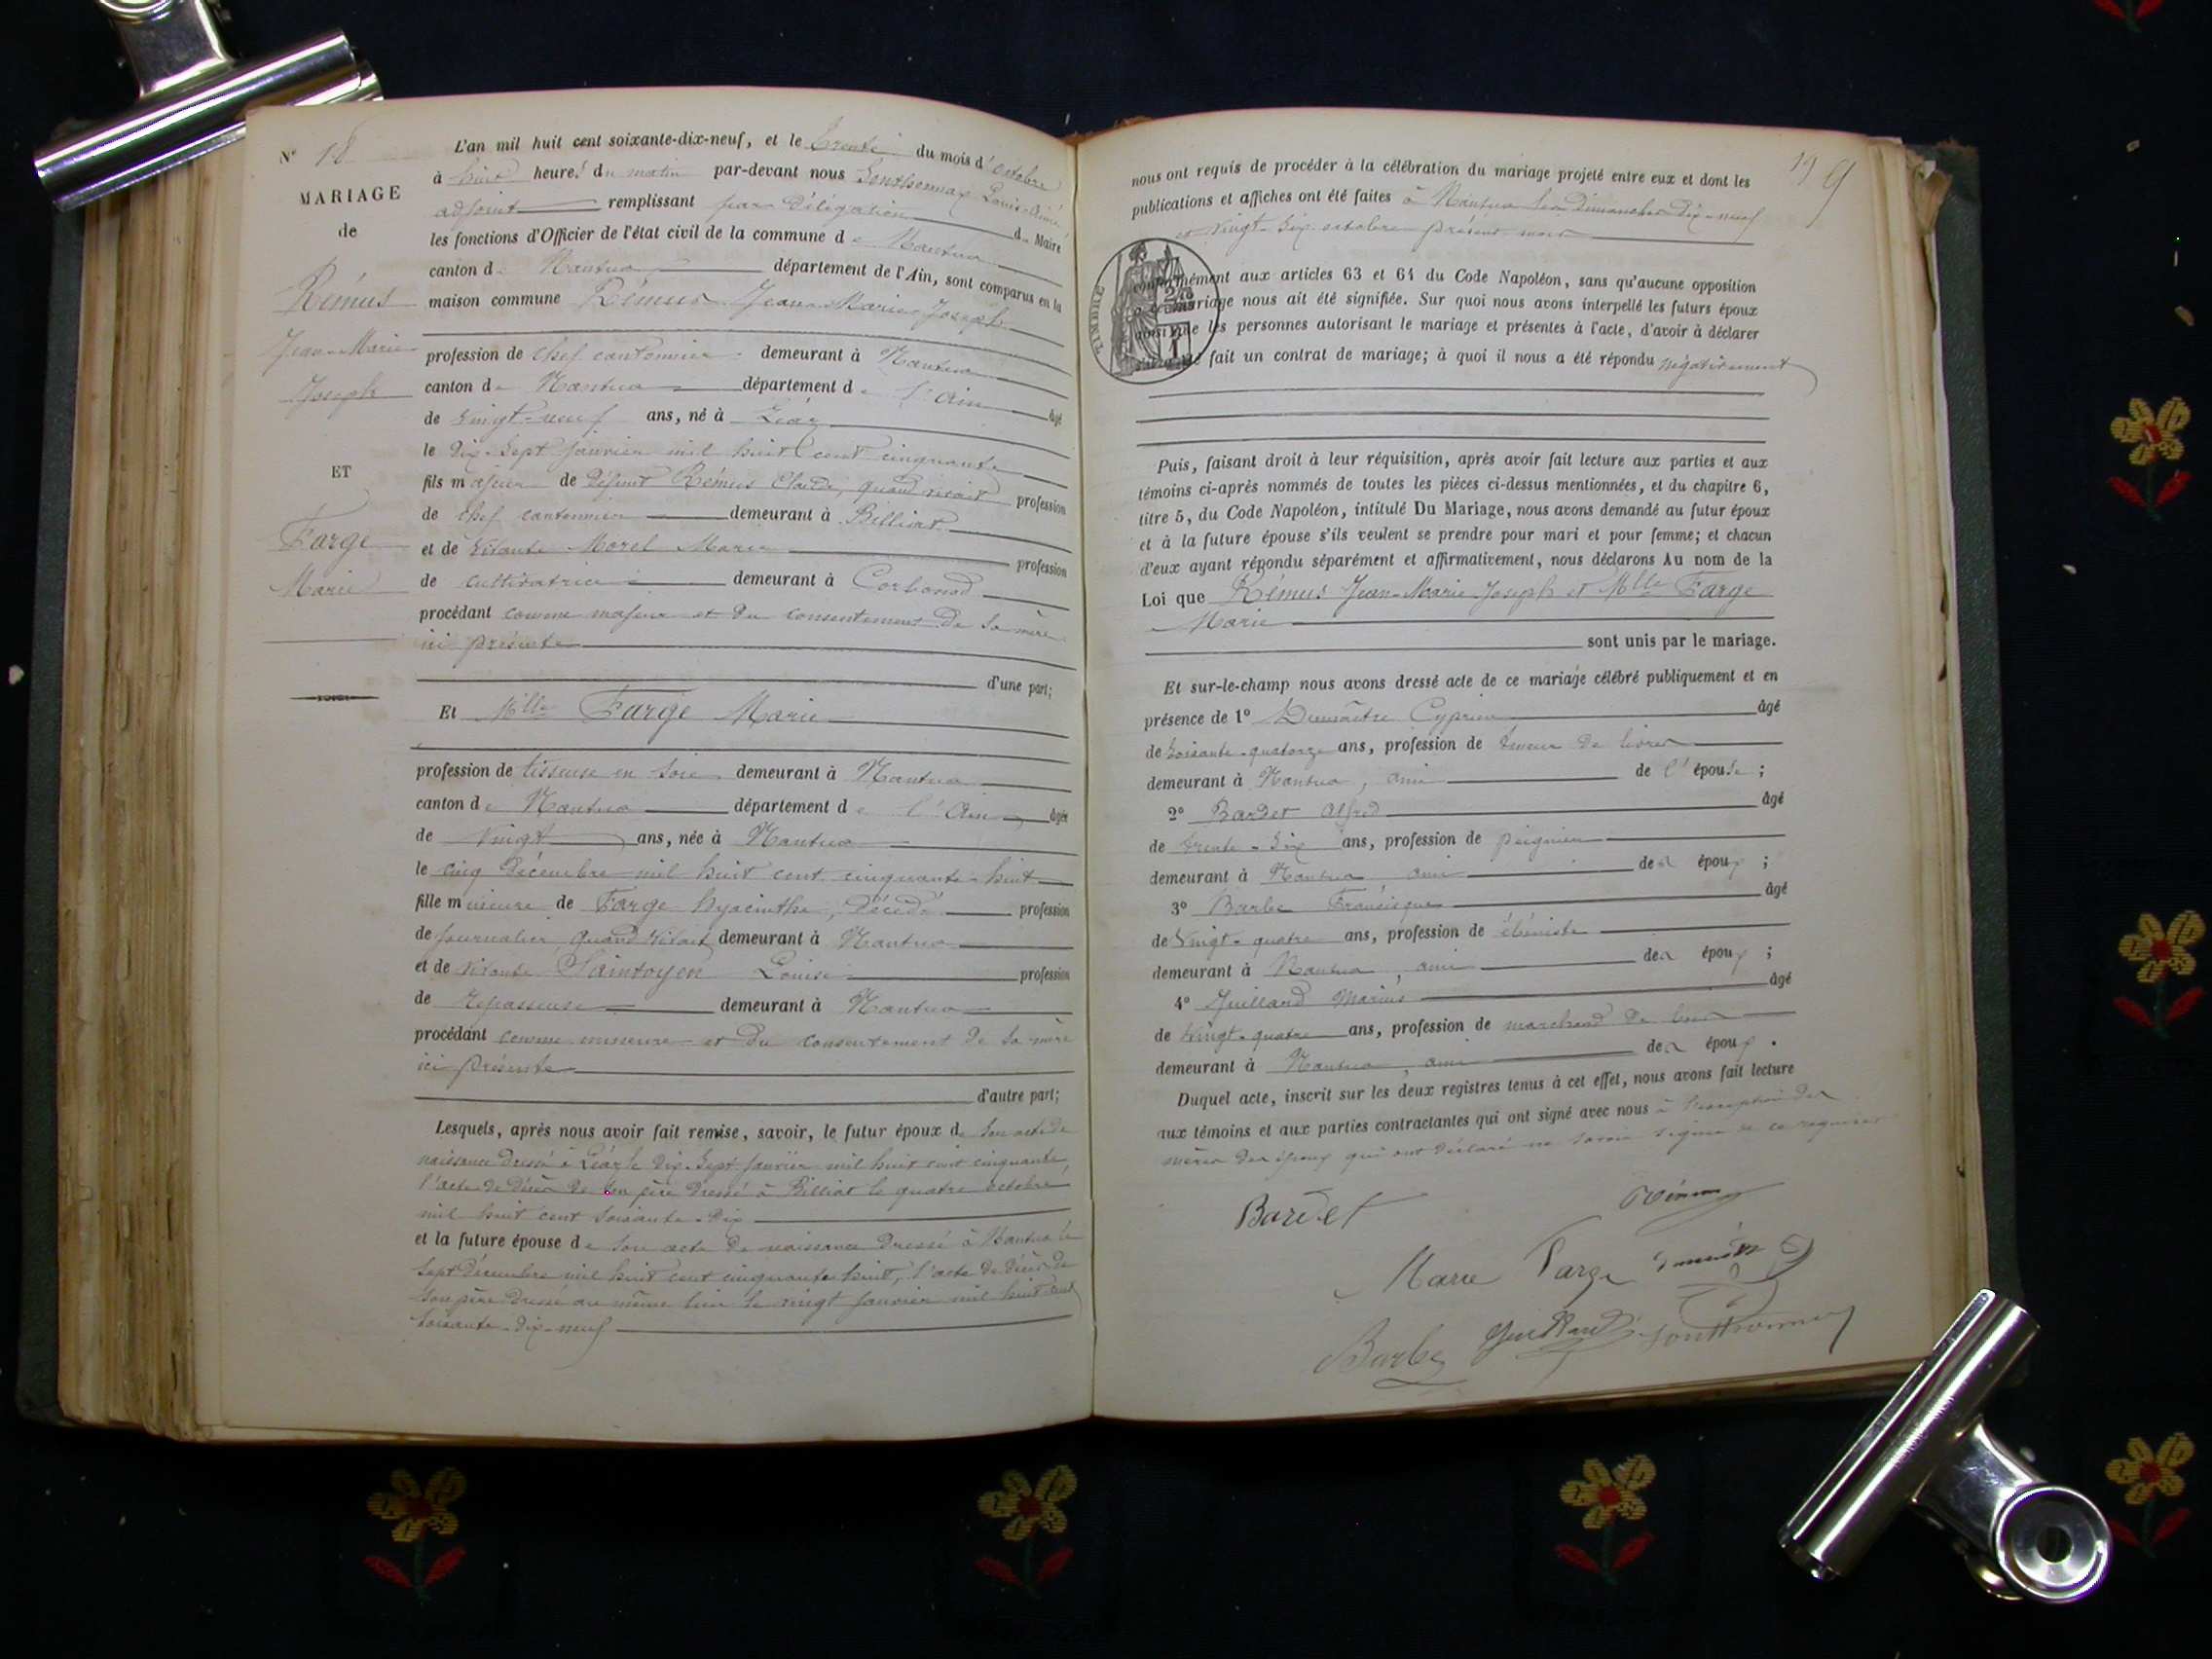 N° 18
MARIAGE
de
Rémus
Jean-Marie
Joseph
ET
Farge
Marie
L'an mil huit cent soixante-dix-neuf, et le trente du mois d'octobre
à huit heures du matin par-devant nous Sonthonnax Louis-Aimé
adjoint remplissant par délégation du Maire
les fonctions d'Officier de l'état civil de la commune de Nantua
canton de Nantua département de l'Ain, sont comparus en la
maison commune Rémus Jean-Marie-Joseph
profession de chef cantonnier demeurant à Nantua
canton de Nantua département de l'Ain âgé
de vingt-neuf ans, né à Léaz
le dix-sept janvier mil huit cent cinquante
fils majeur de défunt Rémus Claude, quand vivait profession
de chef cantonnier demeurant à Billiat
et de vivante Morel Marie profession
de cultivatrice demeurant à Corbonod
procédant comme majeur et du consentement de sa mère
ici présente
d'une part;
Et Mlle Farge Marie
profession de tisseuse en soie demeurant à Nantua
canton de Nantua département de l'Ain âgée
de vingt ans, née à Nantua
le cinq décembre mil huit cent cinquante-huit
fille mineure de Farge hyacinthe, décédé profession
de journalier quand vivait demeurant à Nantua
et de vivante Saintoyen Louise profession
de repasseuse demeurant à Nantua
procédant comme mineure et du consentement de sa mère
ici présente
d'autre part;
Lesquels, après nous avoir fait remise, savoir, le futur époux de son acte de
naissance dressé à Léaz le dix-sept janvier mil huit cent cinquante,
l'acte de décès de son père dressé à Billiat le quatre octobre
mil huit cent soixante-dix
et la future épouse de son acte de naissance dressé à Nantua le
sept décembre mil huit cent cinquante huit, l'acte de décès de
son père dressé au même lieu le vingt janvier mil huit cent
soixante-dix-neuf
19
nous ont requis de procéder à la célébration du mariage projeté entre eux et dont les
publications et affiches ont été faites à Nantua les dimanches dix-neuf
et vingt-six octobre présent mois
conformément aux articles 63 et 64 du Code Napoléon, sans qu'aucune opposition
à ce mariage nous ait été signifiée. Sur quoi nous avons interpellé les futurs époux
ainsi que les personnes autorisant le mariage et présentes à l'acte, d'avoir à déclarer
fait un contrat de mariage; à quoi il nous a été répondu négativement
TIMBRE
Puis, faisant droit à leur réquisition, après avoir fait lecture aux parties et aux
témoins ci-après nommés de toutes les pièces ci-dessus mentionnées, et du chapitre 6,
titre 5, du Code Napoléon, intitulé Du Mariage, nous avons demandé au futur époux
et à la future épouse s'ils veulent se prendre pour mari et pour femme; et chacun
d'eux ayant répondu séparément et affirmativement, nous déclarons Au nom de la
Loi que Rémus Jean-Marie-Joseph et Mlle Farge
Marie
sont unis par le mariage.
Et sur-le-champ nous avons dressé acte de ce mariage célébré publiquement et en
présence de 1° Dumaître Cyprien âgé
de soixante-quatorze ans, profession de teneur de livres
demeurant à Nantua, ami de l'épouse;
2° Bardet Alfred âgé
de trente-six ans, profession de peignier
demeurant à Nantua ami des époux;
3° Barbe Francisque âgé
de vingt-quatre ans, profession de ébéniste
demeurant à Nantua, ami des époux;
4° Guilland Marius âgé
de vingt-quatre ans, profession de marchand de bois
demeurant à Nantua, ami des époux.
Duquel acte, inscrit sur les deux registres tenus à cet effet, nous avons fait lecture
aux témoins et aux parties contractantes qui ont signé avec nous à l'exception des
mères des époux qui ont déclaré ne savoir signer de ce requises
Bardet Rémus
Marie Farge Dumaître
Barbe Guilland Sonthonnax